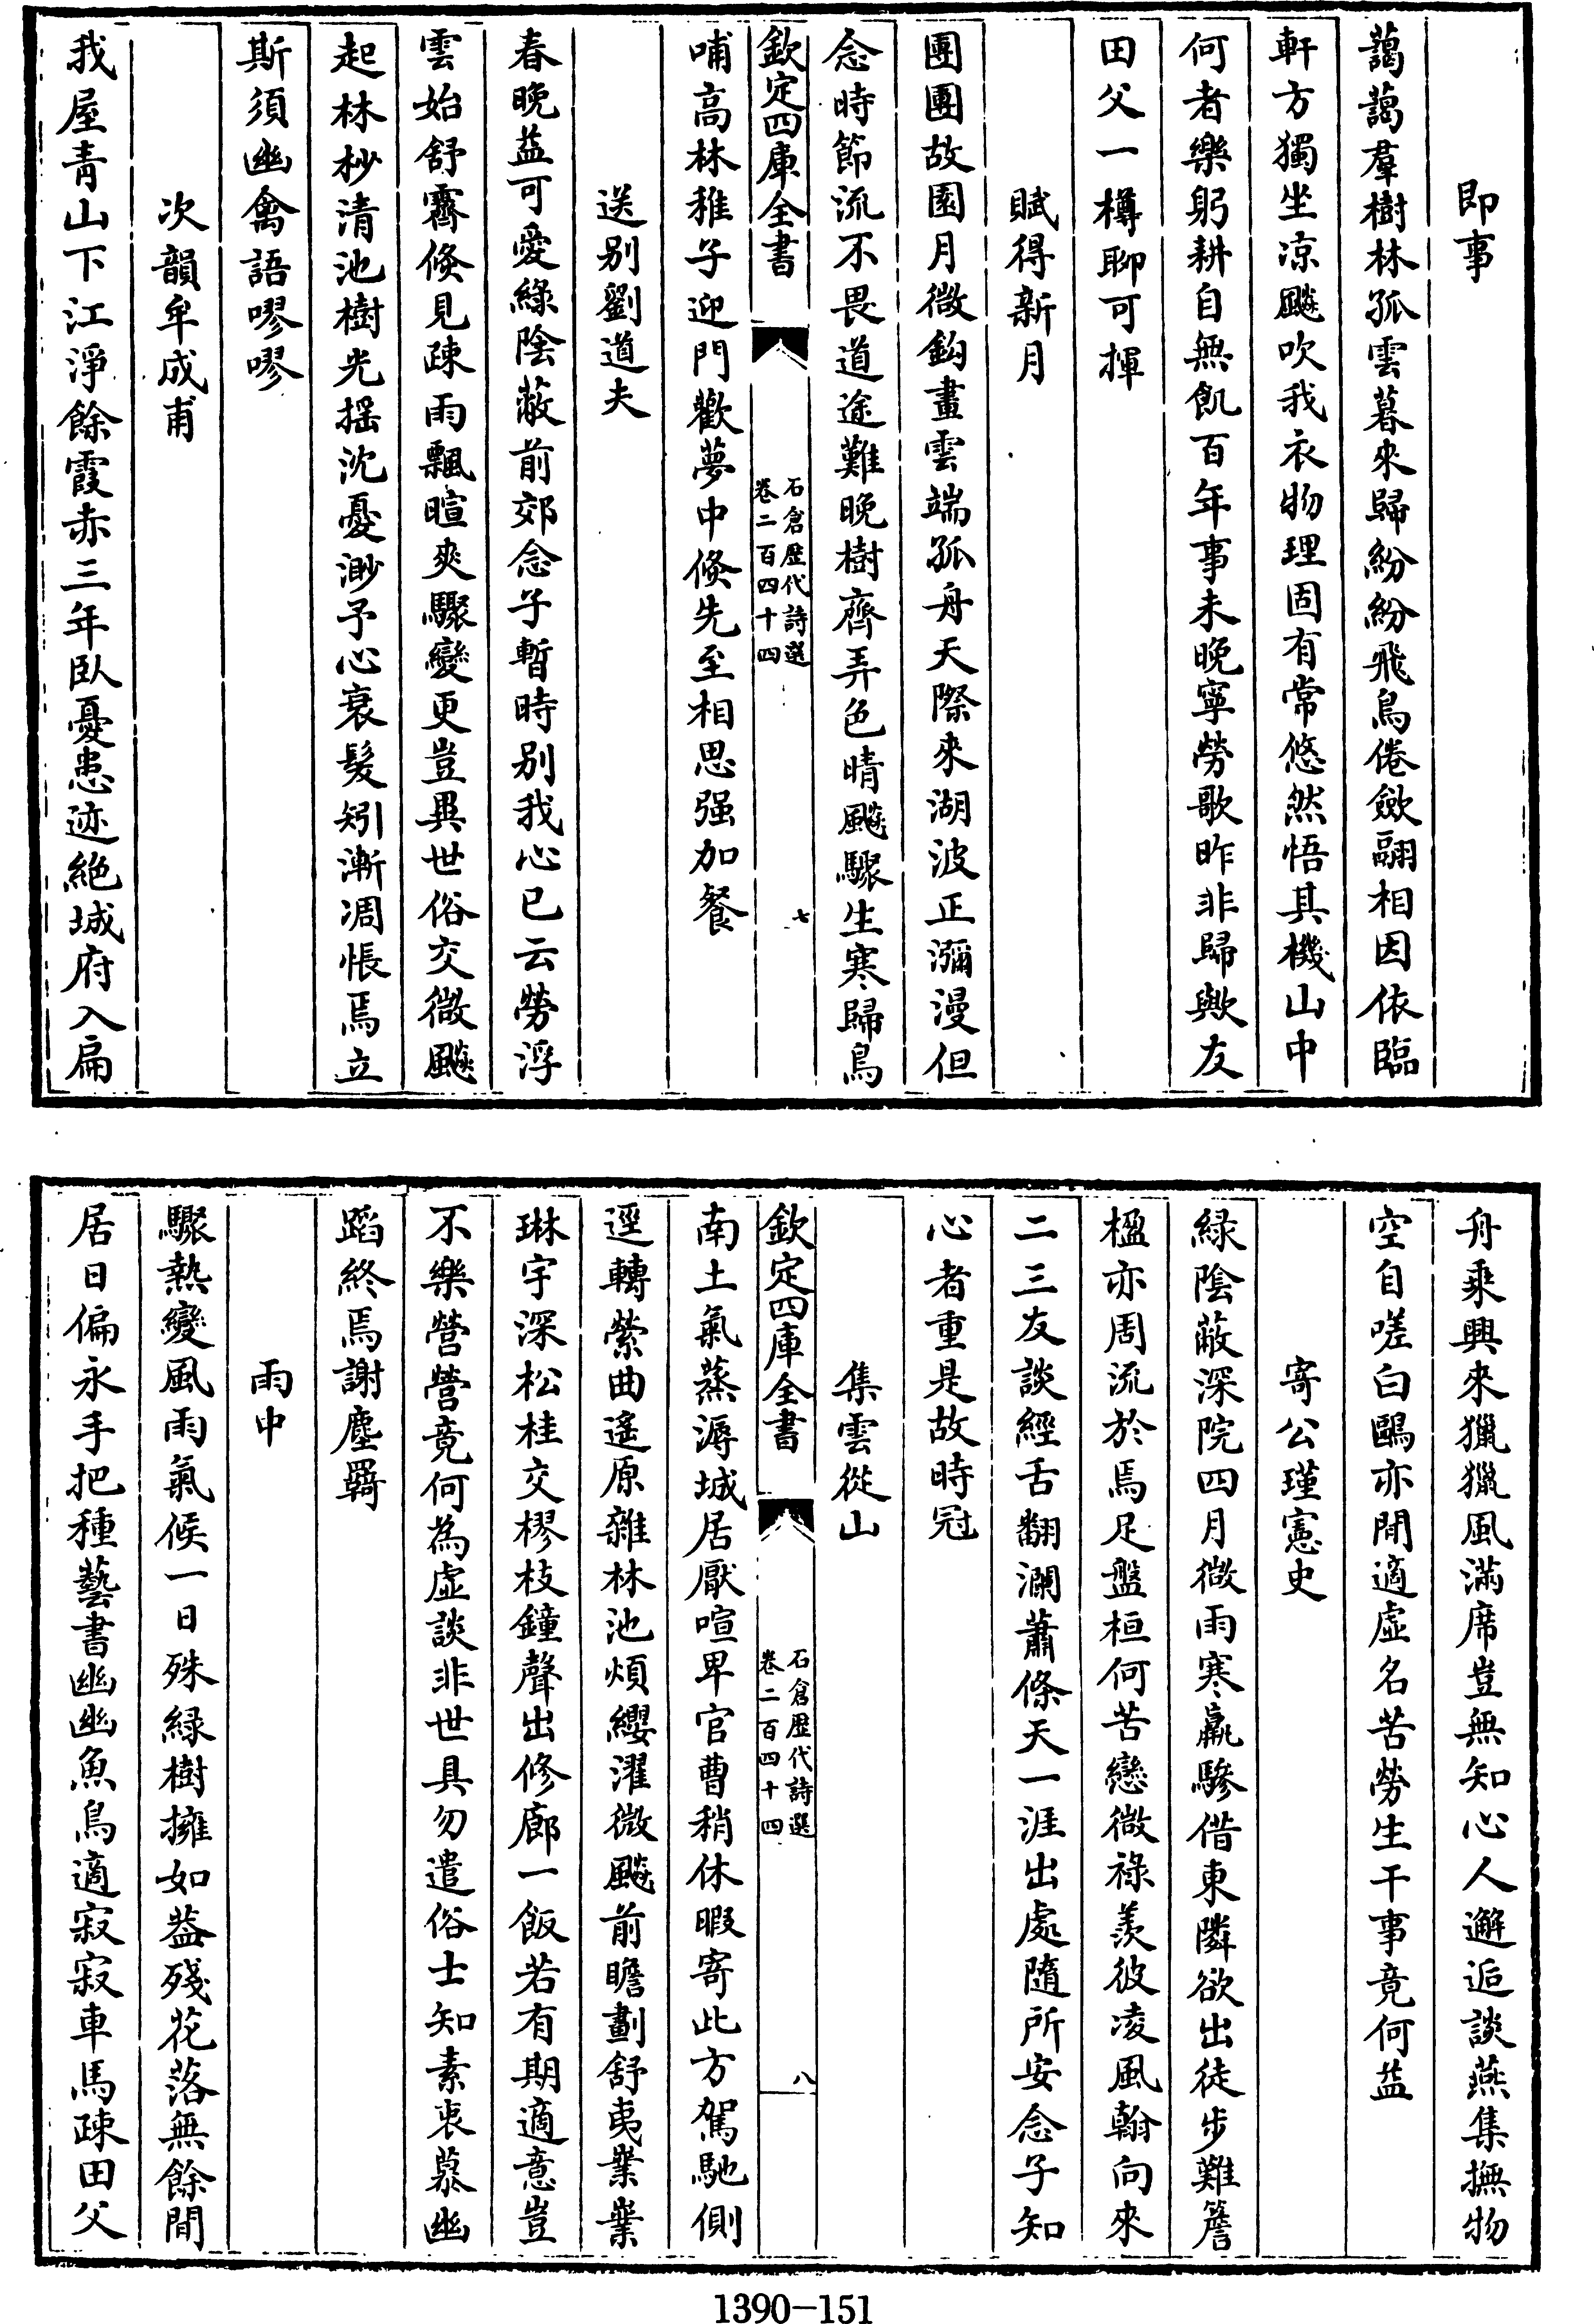 即事
藹藹羣樹林孤雲暮來歸紛紛飛鳥倦斂翮相因依臨
軒方獨坐凉飈吹我衣物理固有常悠然悟其機山中
何者樂躬耕自無飢百年事未晚寧勞歌昨非歸歟友
田父一樽聊可揮
賦得新月
團團故園月微鈎畫雲端孤舟天際來湖波正瀰漫但
念時節流不畏道途難晚樹齊弄色晴飈驟生寒歸鳥
欽定四庫全書
石倉歷代詩選
卷二百四十四
七
哺高林稚子迎門歡夢中倐先至相思强加餐
送别劉道夫
春晚益可愛綠陰蔽前郊念子暫時別我心已云勞浮
雲始舒霽倐見疎雨飄暄爽驟變更豈異世俗交微飈
起林杪清池樹光摇沈憂渺予心衰髮矧漸凋悵焉立
斯須幽禽語嘐嘐
次韻牟成甫
我屋青山下江淨餘霞赤三年臥憂患迹絶城府入扁
舟乘興來獵獵風滿席豈無知心人邂逅談燕集撫物
空自嗟白鷗亦閒適虛名苦勞生干事竟何益
寄公瑾憲史
綠陰蔽深院四月微雨寒羸驂借東隣欲出徒步難簷
楹亦周流於焉足盤桓何苦戀微祿羨彼凌風翰向來
二三友談經舌翻瀾蕭條天一涯出處隨所安念子知
心者重是故時冠
集雲從山
欽定四庫全書
石倉歷代詩選
卷二百四十四
八
南土氣蒸溽城居厭喧卑官曹稍休暇寄此方駕馳側
逕轉縈曲遙原雜林池煩纓濯微飈前瞻劃舒夷業業
琳宇深松桂交樛枝鐘聲出修廊一飯若有期適意豈
不樂營營竟何為虛談非世具勿遣俗士知素衷慕幽
蹈終焉謝塵羇
雨中
驟熱變風雨氣候一日殊緑樹擁如葢殘花落無餘閒
居日偏永手把種藝書幽幽魚鳥適寂寂車馬疎田父
1390-151